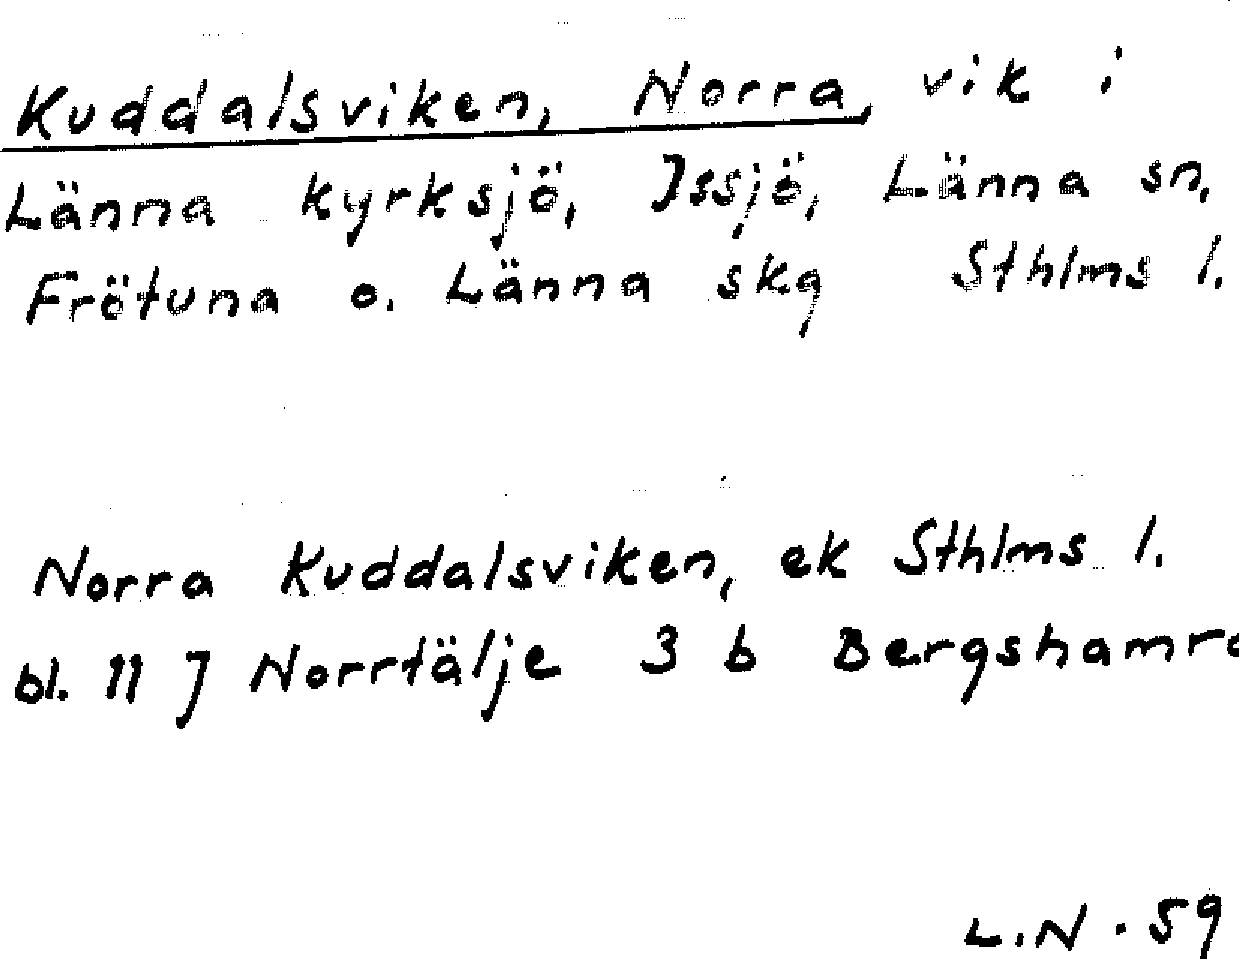 Kuddalsviken, Norra, vik i
Länna kyrksjö, Issjö, Länna sn,
Frötuna o. Länna skg Sthlms l.
Norra Kuddalsviken, ek Sthlms l.
bl. 11 J Norrtälje 3 b Bergshamra
L.N. 59